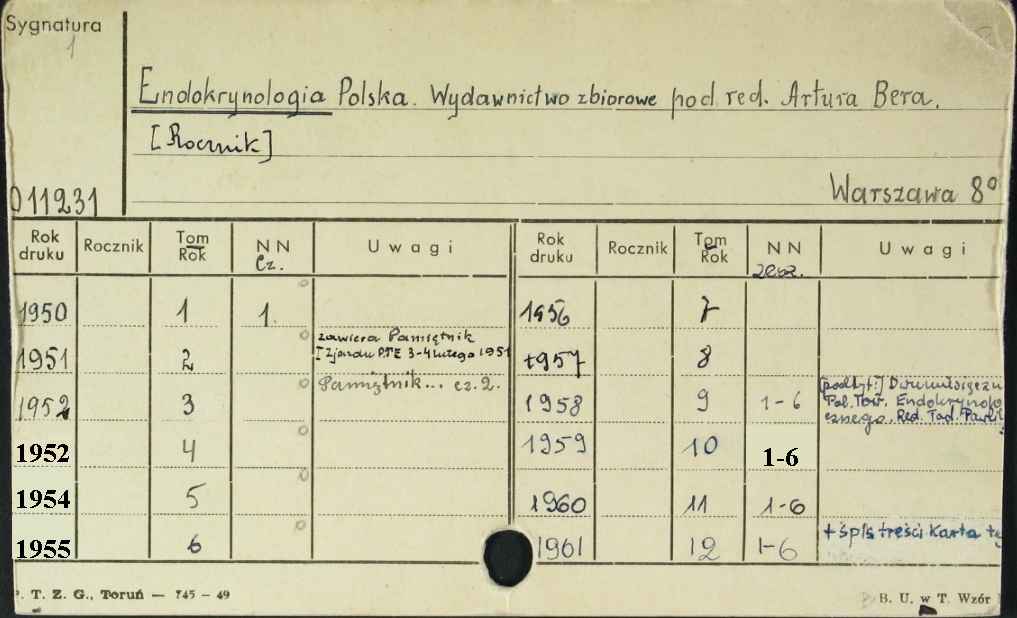 Sygnatura
1
Endokrynologia Polska. Wydawnictwo zbiorowe pod red. Artura Bera.
[Rocznik]
011231
Warszawa 8°
Rok druku Rocznik Tom Rok NN cz. Uwagi Rok druku Rocznik Tom Rok NN zesz. Uwagi
1950 1 1. 1956 7
1951 2 zawiera Pamiętnik I Zjazdu PTE 3-4 lutego 1951 1957 8
1952 3 Pamiętnik... cz. 2. 1958 9 1-6 [podtyt:] Dwumiesięczn Pol. Tow. Endokrynolo cznego. Red. Tad.
1952 4 1959 10 1-6
1954 5 1960 11 1-6
1955 6 1961 12 1-6 + spis treści Karta
P. T. Z. G., Toruń — 745 – 49
B. U. w T. Wzór